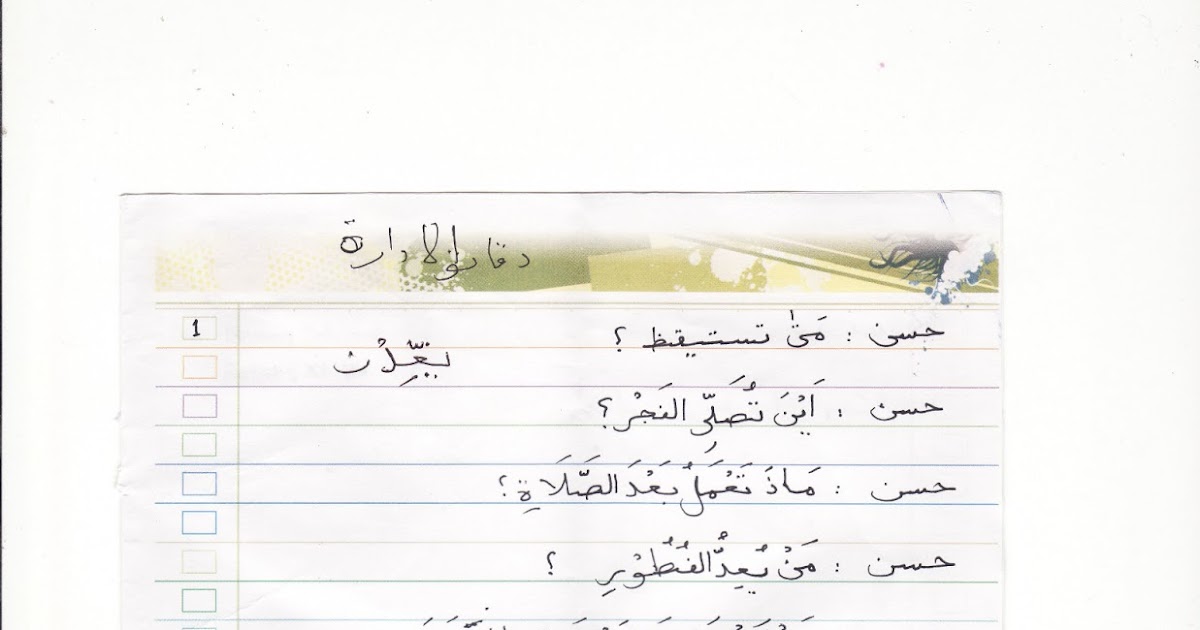 دقائق الإدارة
1
حسن : مَتٰى تستيقظ ؟
حسن : اَيْنَ تُصَلِّى الفَجْر؟
حسن : مَاذَ تَعْمَلُ بَعْدَ الصَّلَاةِ؟
حسن : مَنْ يُعِدُّ الفُطُوْرِ ؟